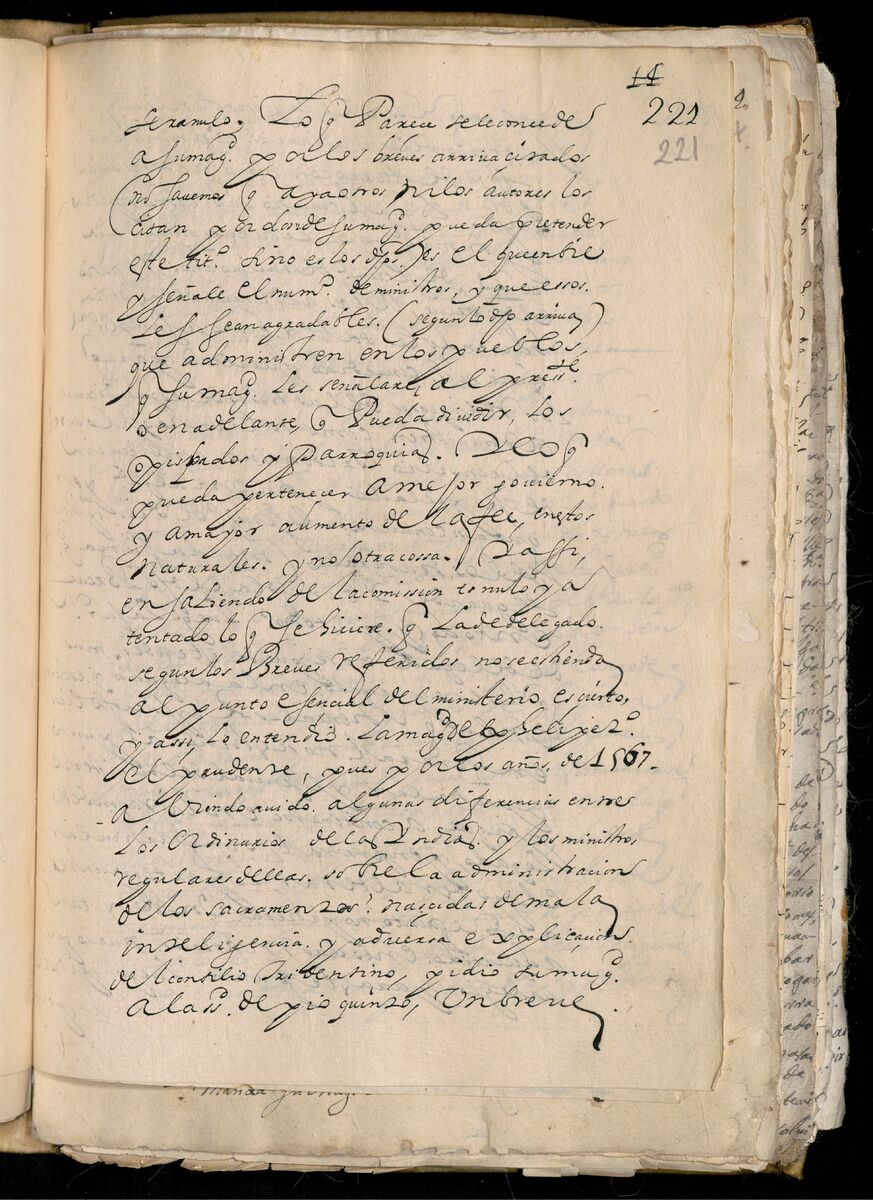 14
221
221
seranulo, Lo q Parece seleconcede
a sumagd. por los breves arriva citados
no savemos q aya otros, ni los autores los
citan por donde sumagd. pueda pretender
este titº. sino es los dhos. es el que enbie
y señale el numº. de ministros, y que essos.
les sean agradables. (segun lo dho arriva)
que administren en los pueblos,
q sumagd. les señalare, al presste.
o en adelante, q Pueda dividir, los
opispados y Parroquias. Y lo q
pueda pertenecer a mejor govierno.
y a mayor aumento de la fee, enestos
naturales. y no otra cossa. Y assi,
en saliendo de la comission es nulo y a
tentado lo q se hiciere. q La de delegado.
segun los Breves referidos no se estienda
al punto esencial del ministerio, es cierto,
y assi, lo entendio. la magd de Phelipe 2º.
el prudente, pues por los años, de 1567.
a viendo avido. algunas diferencias entre
Los Ordinarios de las Yndias. y los ministros
regulares dellas. sobre la administracion
de los sacramentos. nascidas de mala
inteligencia. y adversa explicacion.
del consilio tridentino, pidio sumagd.
a la sd. de pio quinto, Un breve